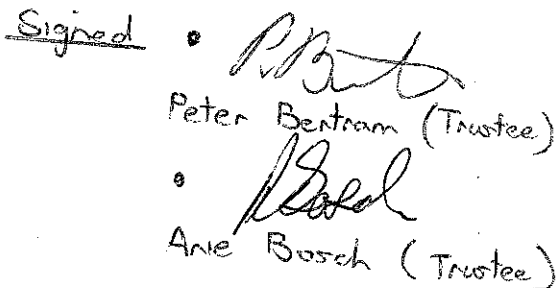 Signed
Peter Bertram (Trustee)
Arie Bosch (Trustee)